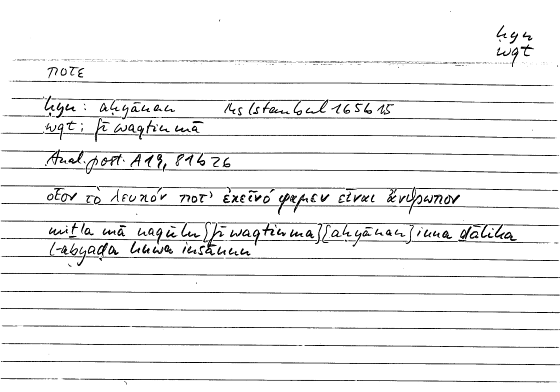 ḥyn
wqt
ποτε
ḥyn: aḥyānan Ms Istanbul 165b15
wqt: fī waqtin mā
Anal. post. A 19, 81b26
οἷον τὸ λευκόν ποτ' ἐκεῖνό φαμεν εἶναι ἄνθρωπον
miṯla mā naqūlu [fī waqtin ma] [aḥyānan] inna ḏālika
l-abyaḍa huwa insānun